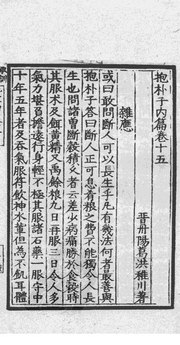 抱朴子内篇卷十五
晋丹陽葛洪稚川著
雜應
或曰敢問斷人可以長生乎凡有幾法何者最善與
抱朴子答曰斷人正可息肴粮之費不能獨令人長
生也問諸曾斷穀積久者云差少病痛勝於食穀時
其服术及餌黃精又禹餘粮丸日再服三日令人多
氣力堪負擔遠行身輕不極其服諸石藥一服守中
十年五年者及吞氣服符飲神水輩但為不飢耳體